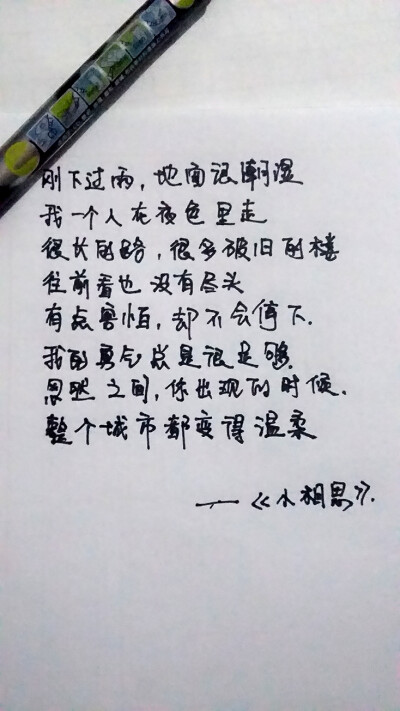 刚下过雨，地面很潮湿
我一个人在夜色里走
很长的路，很多破旧的楼
往前看也没有尽头
有点害怕，却不会停下.
我的勇气总是很足够.
忽然之间，你出现的时候.
整个城市都变得温柔
——《小相思》.